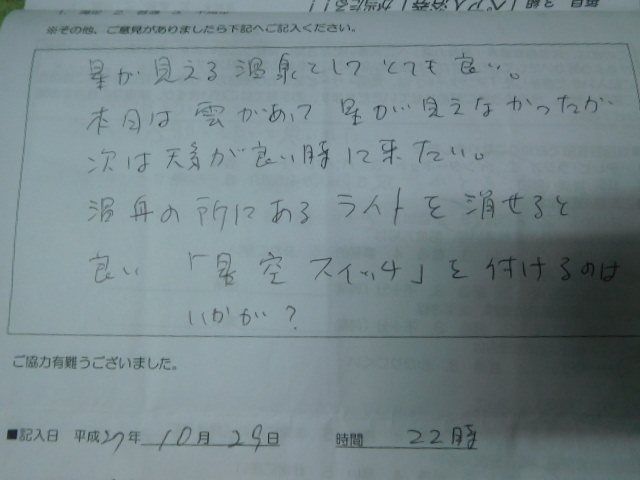 ※その他、ご意見がありましたら下記へご記入ください。
星が見える温泉としてとても良い。
本日は雲があって星が見えなかったが
次は天気が良い時に来たい。
温舟の所にあるライトを消せると
良い「星空スイッチ」を付けるのは
いかが?
ご協力有難うございました。
■記入日 平成27年 10月 29日 時間 22時